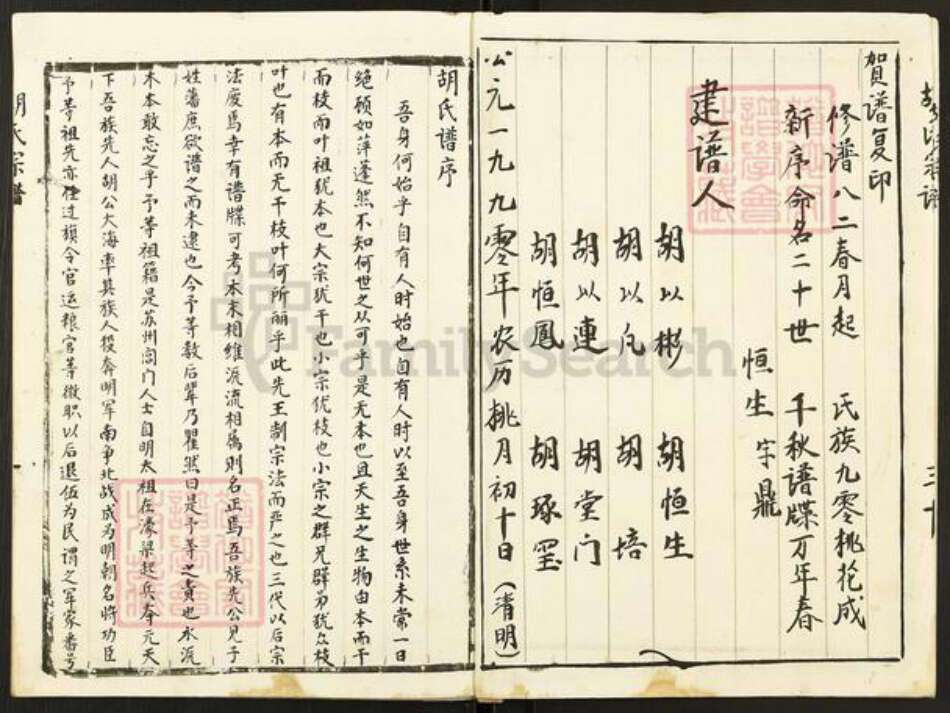 賀谱复印
修谱八二春月起 民族九零桃花成
新序命名二十世 千秋谱牒万年春
恒生字鼎
建谱人
胡以彬 胡恒生
胡以凡 胡培
胡以連 胡堂门
胡恒鳳 胡琢玺
公元一九九零年农历桃月初十日(清明)
三十
胡氏宗譜
胡氏譜序
吾身何始乎自有人时始也自有人时以至吾身世系未常一日
绝顾如萍蓬然不知何世之从可乎是无本也且天生之生物由本而干
而枝而叶祖犹本也大宗犹干也小宗犹枝也小宗之群兄群弟犹众枝
叶也有本而无干枝叶何所丽乎此先王制宗法而严之也三代以后宗
法废焉幸有谱牒可考本末相維派流相属則名正焉吾族先公見于
姓藩庶欲谱之而未逮也今予等数后輩乃瞿然曰是予等之責也水派
木本敢忘之乎予等祖籍是苏州阊门人士自明太祖在濠梁起兵夺元天
下吾族先人胡公大海率其族人投奔明军南争北战成为明朝名將功臣
予等祖先亦任过旗令官运粮官等微职以后退伍为民謂之军家番号
FamilySearch